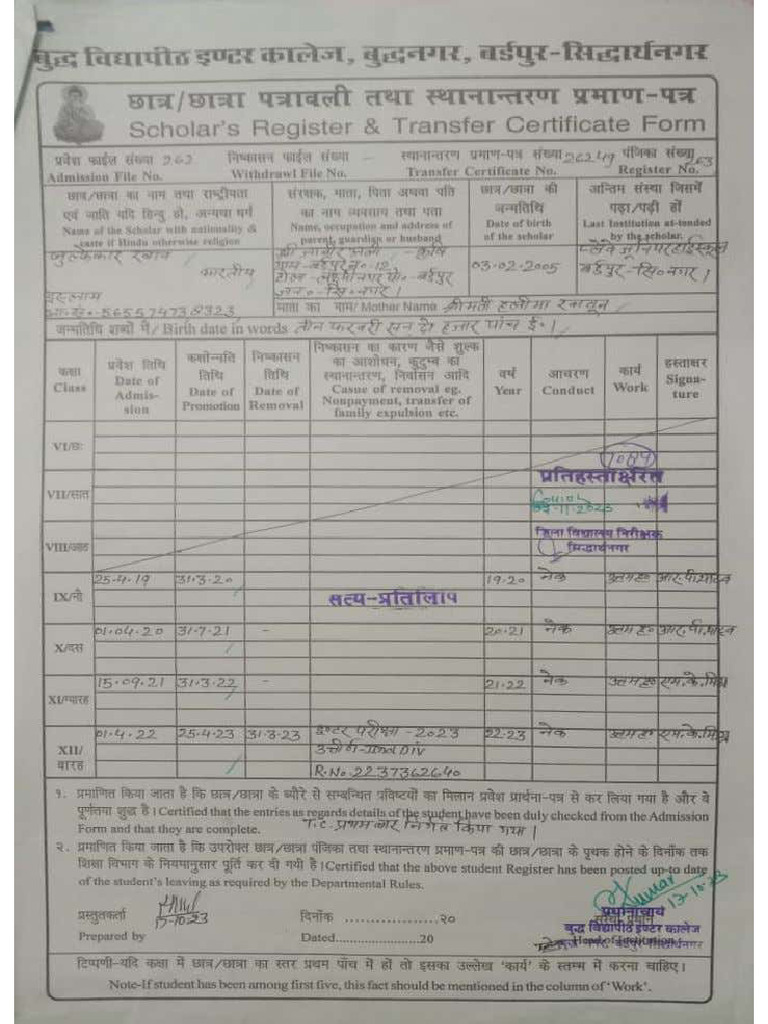 बुद्ध विद्यापीठ इण्टर कालेज, बुद्धनगर, बर्डपुर-सिद्धार्थनगर
छात्र/छात्रा पत्रावली तथा स्थानान्तरण प्रमाण-पत्र
Scholar's Register & Transfer Certificate Form
प्रवेश फाईल संख्या 262 निष्कासन फाईल संख्या - स्थानान्तरण प्रमाण-पत्र संख्या पंजिका संख्या
Admission File No. Withdrawl File No. Transfer Certificate No. Register No.
छात्र/छात्रा का नाम तथा राष्ट्रीयता एवं जाति यदि हिन्दु हो, अन्यथा धर्म
Name of the Scholar with nationality & caste if Hindu otherwise religion
संरक्षक, माता, पिता अथवा पति का नाम व्यवसाय तथा पता
Name, occupation and address of parent, guardian or husband
छात्र/छात्रा की जन्मतिथि
Date of birth of the scholar
अन्तिम संस्था जिसमें पढ़ा/पढ़ी हों
Last Institution at-tended by the scholar.
भारतीय
इस्लाम
03-02-2005
बर्डपुर-सि०नगर।
माता का नाम/Mother Name श्रीमती हलीमा खातून
जन्मतिथि शब्दों में/Birth date in words तीन फरवरी सन दो हजार पांच ई०।
कक्षा Class
प्रवेश तिथि Date of Admis-sion
कक्षोन्नति तिथि Date of Promotion
निष्कासन तिथि Date of Removal
निष्कासन का कारण जैसे शुल्क का आशोधन, कुटुम्ब का स्थानान्तरण, निर्वासन आदि
Casue of removal eg. Nonpayment, transfer of family expulsion etc.
वर्ष Year
आचरण Conduct
कार्य Work
हस्ताक्षर Signa-ture
VI/छः
प्रतिहस्ताक्षरित
VII/सात
जिला विद्यालय निरीक्षक
सिद्धार्थनगर
VIII/आठ
IX/नौ 25-4-19 31-3-20 19-20 नेक
सत्य-प्रतिलिपि
X/दस 01-04-20 31-7-21 - 20-21 नेक
XI/ग्यारह 15-09-21 31-3-22 - 21-22 नेक
XII/बारह 01-4-22 25-4-23 31-3-23 इण्टर परीक्षा-2023 22-23 नेक
R.No. 2237362640
१. प्रमाणित किया जाता है कि छात्र/छात्रा के ब्यौरे से सम्बन्धित प्रविष्टियों का मिलान प्रवेश प्रार्थना-पत्र से कर लिया गया है और वे
पूर्णतया शुद्ध है। Certified that the entries as regards details of the student have been duly checked from the Admission
Form and that they are complete. T.C. प्रथम बार निर्गत किया गया।
२. प्रमाणित किया जाता है कि उपरोक्त छात्र/छात्रा पंजिका तथा स्थानान्तरण प्रमाण-पत्र की छात्र/छात्रा के पृथक होने के दिनाँक तक
शिक्षा विभाग के नियमानुसार पूर्ति कर दी गयी है। Certified that the above student Register has been posted up-to date
of the student's leaving as required by the Departmental Rules.
Kumar 13-10-23
प्रस्तुतकर्ता 13-10-23 दिनाँक ..................२० प्रधानाचार्य
बुद्ध विद्यापीठ इण्टर कालेज
Prepared by Dated.....................20 Head of Institution
टिप्पणी-यदि कक्षा में छात्र/छात्रा का स्तर प्रथम पाँच में हों तो इसका उल्लेख 'कार्य' के स्तम्भ में करना चाहिए।
Note-If student has been among first five, this fact should be mentioned in the column of 'Work'.